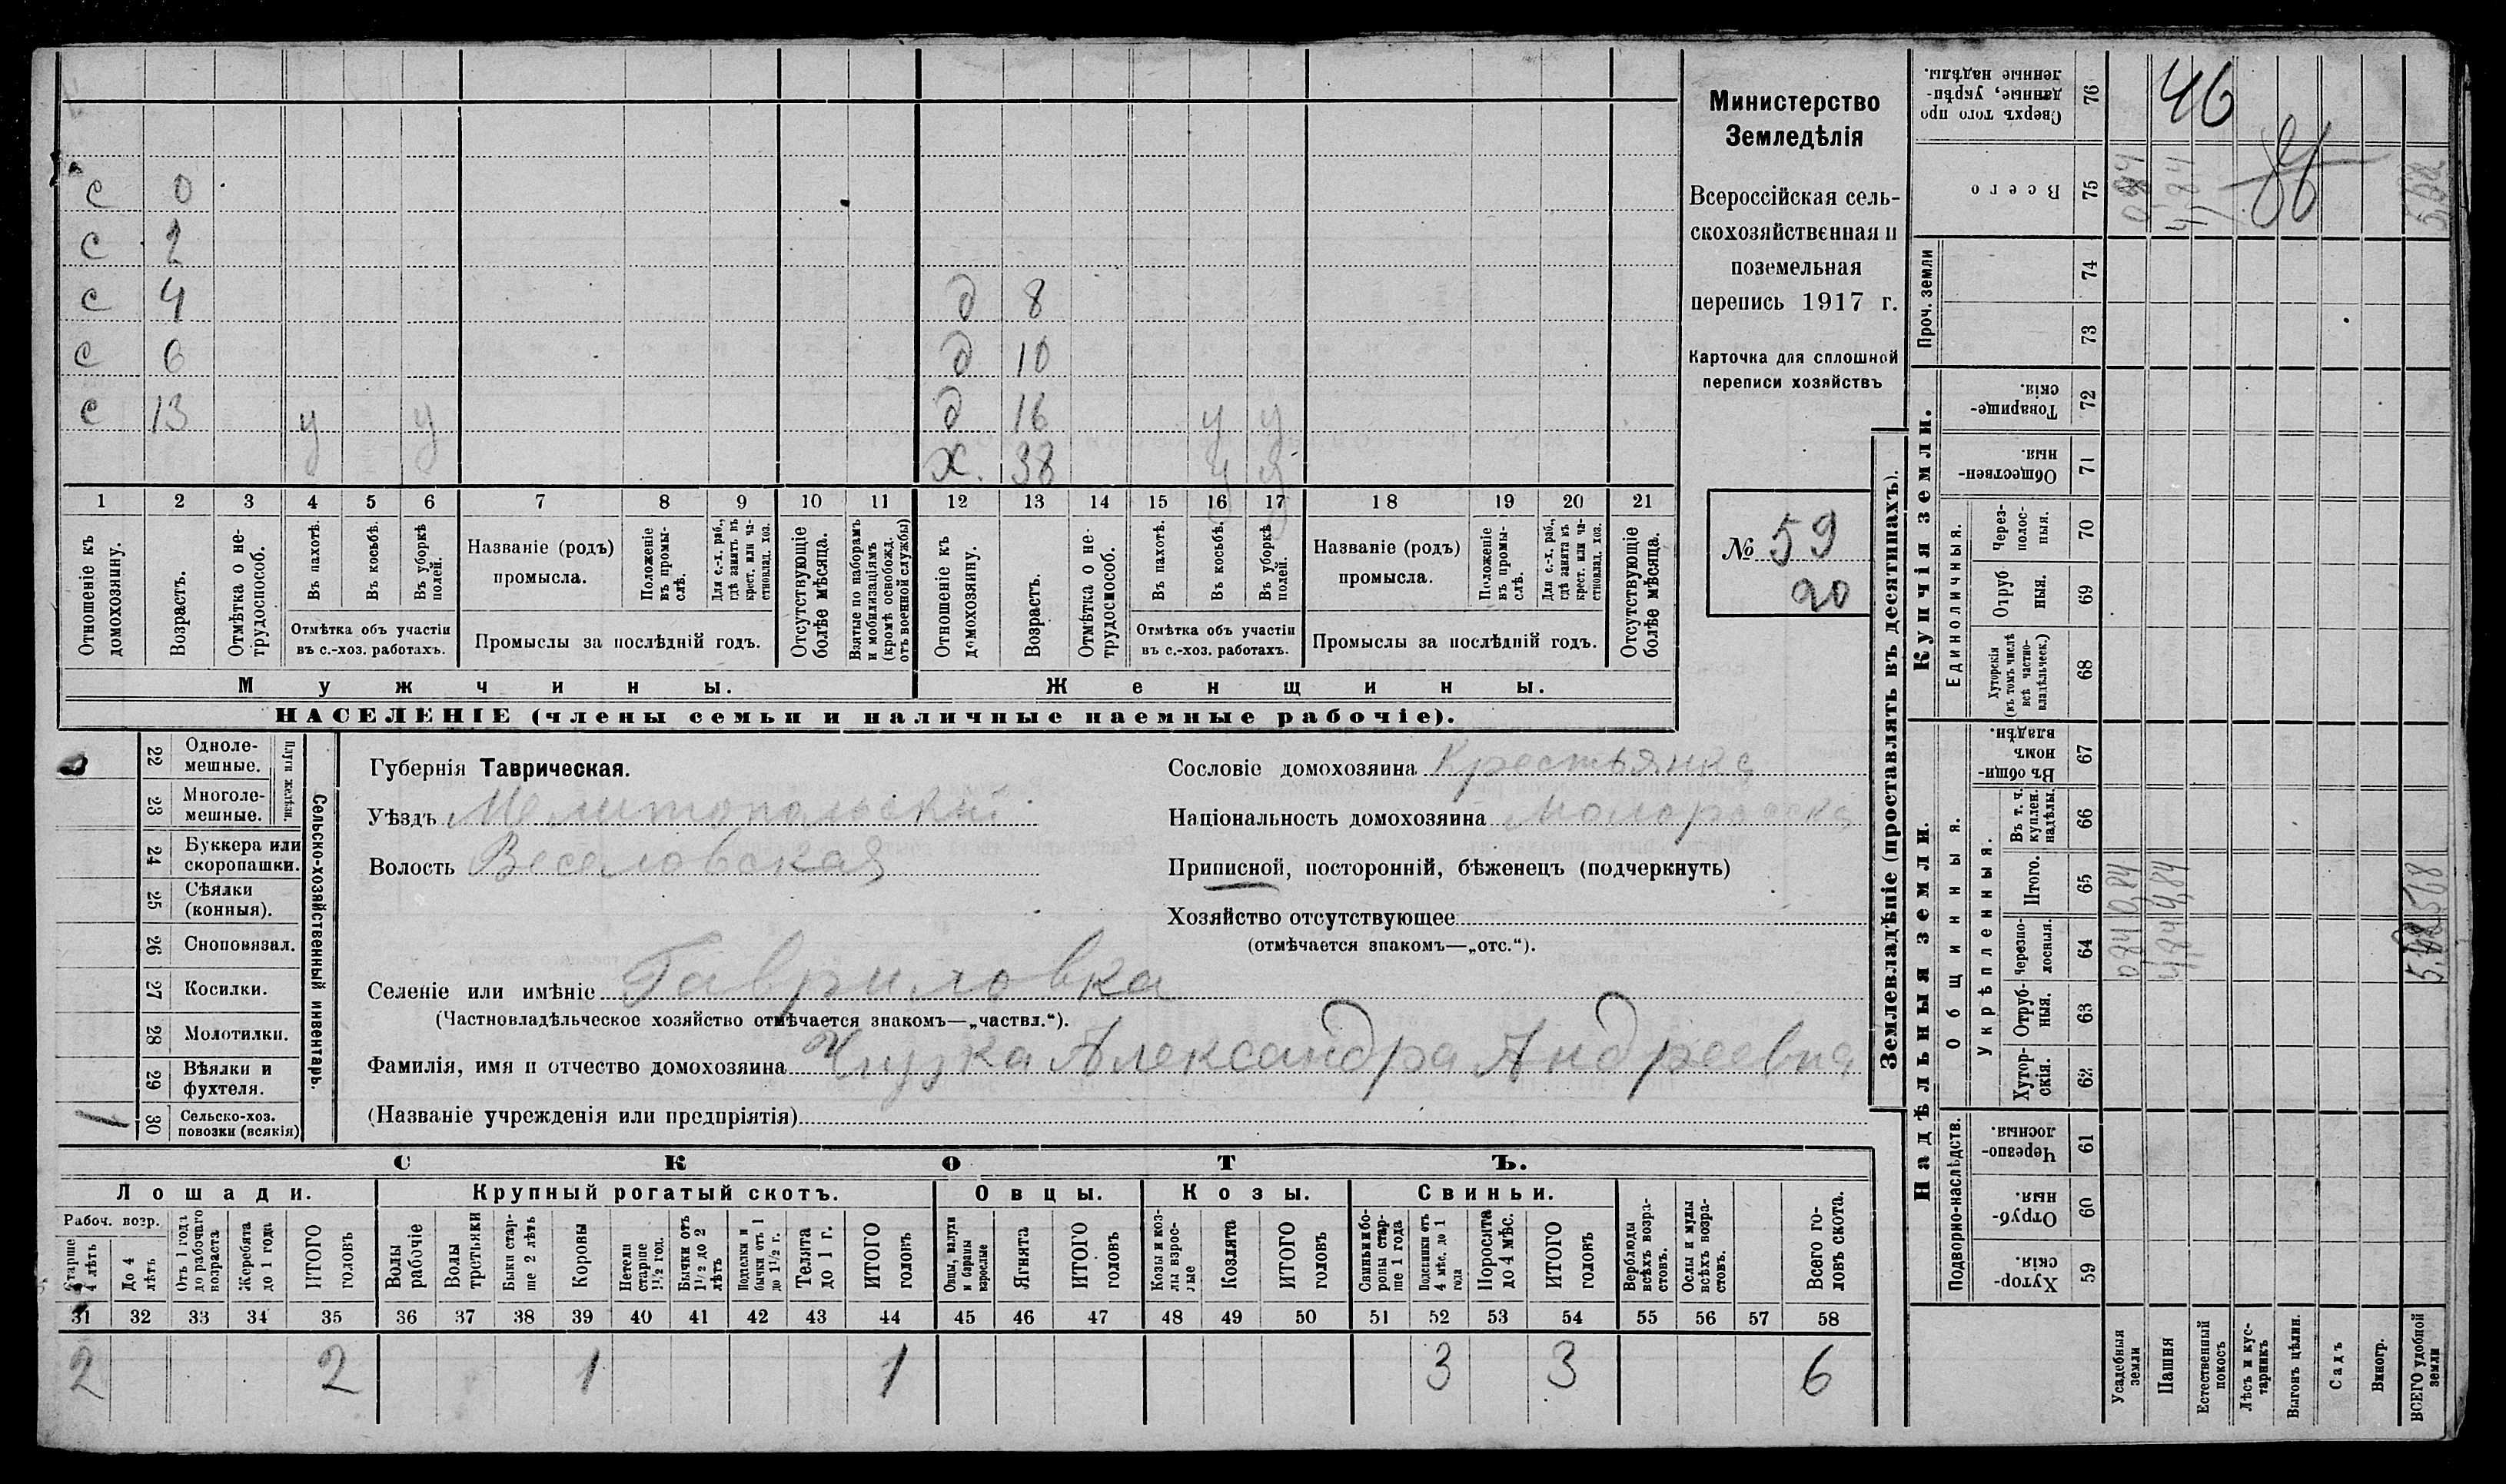 Министерство
Земледѣлія
Всероссійская сель-
скохозяйственная и
поземельная
перепись 1917 г.
Карточка для сплошной
переписи хозяйствъ
№ 59
20
с 0
с 2
с 4 д 8
с 6 д 10
с 13 у у д 16 у у
х. 38 у у
1 2 3 4 5 6 7 8 9 10 11 12 13 14 15 16 17 18 19 20 21
Отношеніе къ домохозяину.
Возрастъ.
Отмѣтка о не-трудоспособ.
Въ пахотѣ.
Въ косьбѣ.
Въ уборкѣ полей.
Отмѣтка объ участіи
въ с.-хоз. работахъ.
Названіе (родъ)
промысла.
Положеніе въ промы-слѣ.
Для с.-х. раб., гдѣ занятъ въ крест. или ча-стновлад. хоз.
Промыслы за послѣдній годъ.
Отсутствующіе болѣе мѣсяца.
Взятые по наборамъ и мобилизаціямъ (кромѣ освобожд. отъ военной службы)
Отношеніе къ домохозяину.
Возрастъ.
Отмѣтка о не-трудоспособ.
Въ пахотѣ.
Въ косьбѣ.
Въ уборкѣ полей.
Отмѣтка объ участіи
въ с.-хоз. работахъ.
Названіе (родъ)
промысла.
Положеніе въ промы-слѣ.
Для с.-х. раб., гдѣ занята въ крест. или ча-стновлад. хоз.
Промыслы за послѣдній годъ.
Отсутствующіе болѣе мѣсяца.
Мужчины. Женщины.
НАСЕЛЕНІЕ (члены семьи и наличные наемные рабочіе).
Сельско-хозяйственный инвентарь.
Плуги желѣзн.
22 Одноле-мешные.
23 Многоле-мешные.
24 Буккера или скоропашки.
25 Сѣялки (конныя).
26 Сноповязал.
27 Косилки.
28 Молотилки.
29 Вѣялки и фухтеля.
1 30 Сельско-хоз. повозки (всякія)
Губернія Таврическая.
Уѣздъ Мелитопольский
Волость Веселовская
Сословіе домохозяина Крестьянка
Національность домохозяина Малоросска
Приписной, посторонній, бѣженецъ (подчеркнуть)
Хозяйство отсутствующее
(отмѣчается знакомъ—„отс.“).
Селеніе или имѣніе Гавриловка
(Частновладѣльческое хозяйство отмѣчается знакомъ—„частвл.“).
Фамилія, имя и отчество домохозяина Александра Андреевна
(Названіе учрежденія или предпріятія)
СКОТЪ.
Лошади. Крупный рогатый скотъ. Овцы. Козы. Свиньи.
Рабоч. возр.
Старше 4 лѣтъ
До 4 лѣтъ
Отъ 1 года до рабочаго возраста
Жеребята до 1 года
ИТОГО головъ
Волы рабочіе
Волы третьяки
Быки стар-ше 2 лѣтъ
Коровы
Нетели старше 1½ год.
Бычки отъ 1½ до 2 лѣтъ
Подтелки и бычки отъ 1 до 1½ г.
Телята до 1 г.
ИТОГО головъ
Овцы, валухи и бараны взрослые
Ягнята
ИТОГО головъ
Козы и коз-лы взрос-лые
Козлята
ИТОГО головъ
Свиньи и бо-ровы стар-ше 1 года
Подсвинки отъ 4 мѣс. до 1 года
Поросята до 4 мѣс.
ИТОГО головъ
Верблюды всѣхъ возра-стовъ.
Ослы и мулы всѣхъ возра-стовъ.
Всего го-ловъ скота.
31 32 33 34 35 36 37 38 39 40 41 42 43 44 45 46 47 48 49 50 51 52 53 54 55 56 57 58
2 2 1 1 3 3 6
Землевладѣніе (проставлять въ десятинахъ).
Сверхъ того про-данные, укрѣп-ленные надѣлы. 76 46
Всего 75 0,84 4,84 5,68
86
Проч. земли 74
73
Купчія земли.
Товарище-скія. 72
Обществен-ныя. 71
Единоличныя.
Через-полос-ныя. 70
Отруб ныя. 69
Хуторскія (въ томъ числѣ всѣ частно-владѣльческ.) 68
Надѣльныя земли.
Общинныя.
Въ общи-номъ владѣн. 67
Укрѣпленныя.
Въ т. ч. куплен. надѣлы. 66
Итого. 65 0,84 4,84 5,68
Черезпо-лосныя. 64 0,84 4,84 5,68
Отруб-ныя. 63
Хутор-скія. 62
Подворно-наслѣдств.
Черезпо-лосныя. 61
Отруб-ныя. 60
Хутор-скія. 59
Усадебныя земли
Пашня
Естественный покосъ
Лѣсъ и кус-тарникъ
Выгонъ цѣлин.
Садъ
Виногр.
ВСЕГО удобной земли